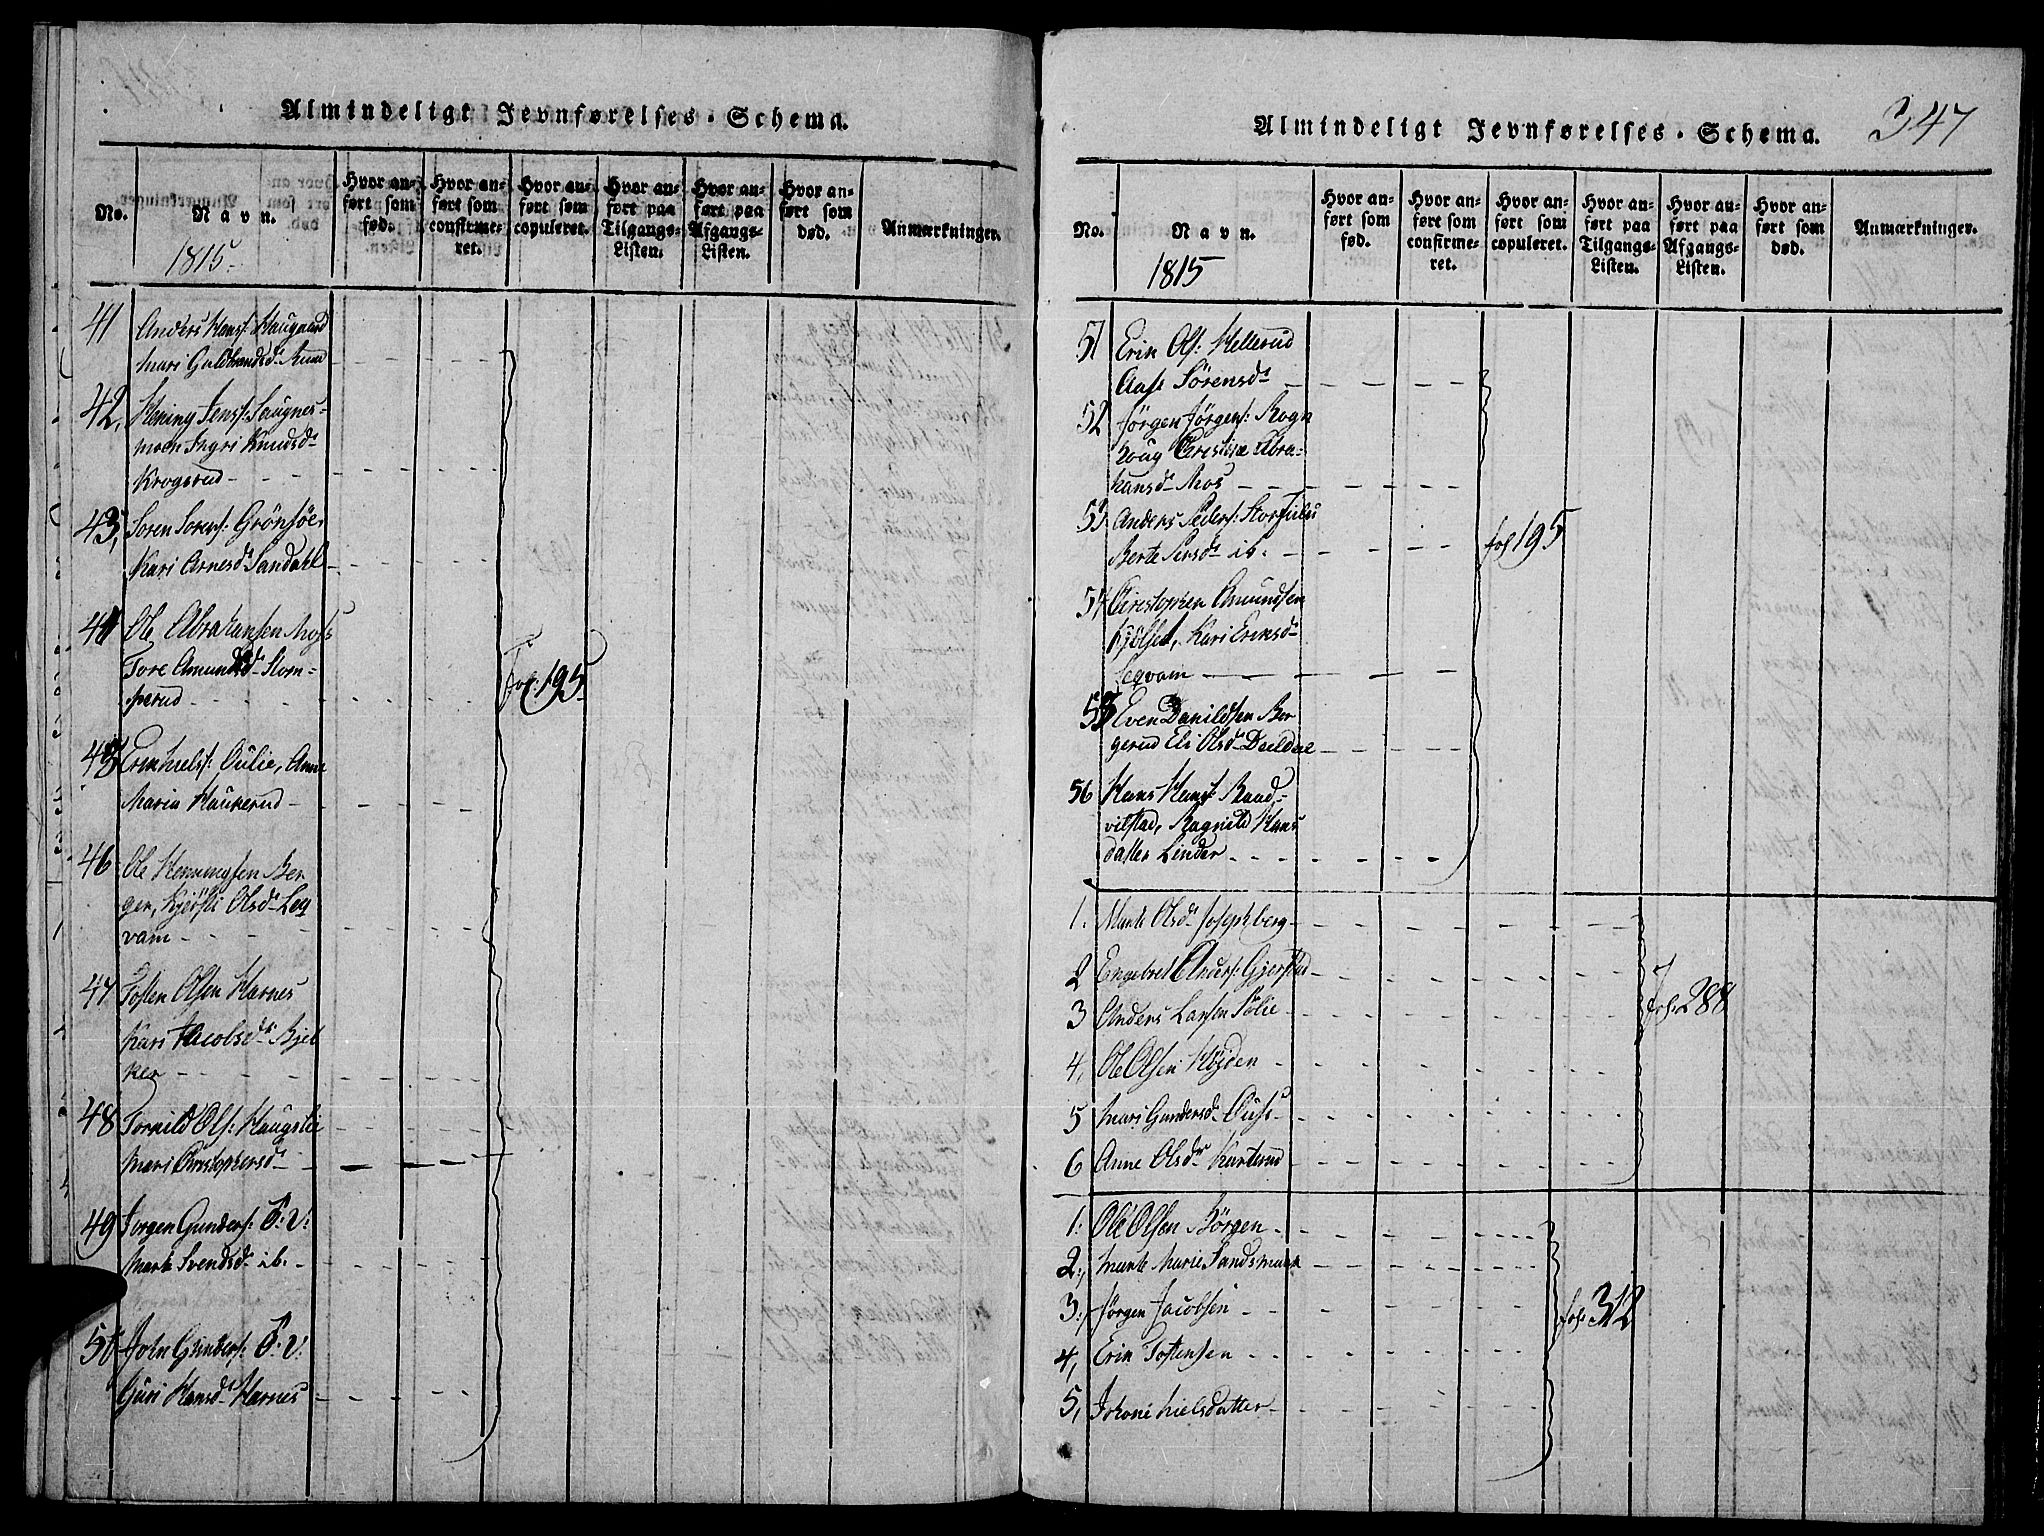 Almindeligt Jevnførelses-Schema.
No.
Navn.
1815.
Hvor anført som fød.
Hvor anført som confirmeret.
Hvor anført som copuleret.
Hvor anført paa Tilgangs-Listen.
Hvor anført paa Afgangs-Listen.
Hvor anført som død.
Anmærkninger.
41 Anders Hans: Haugerud
Mari Guldbrandsd.
42, Hening Jens: Saugnes-
moen Ingri Knudsd.
Krogsrud
43, Soren Sorens:
Kari Arnesd. Sandahl
44 Ole Abrahamsen Moss
Tore Amundsd. Stom-
perud
fol. 195
45 Erik Niels: Oulie, Anne
Maria Haukerud
46 Ole Henningsen Ber
gen, Kjersti Olsd. Leq
vam
47 Tosten Olsen Harnes
Kari Jacobsd. Bjel
ker
48 Tornild Ols: Haugslie
Mari Christophersd.
49 Jørgen Gunders: T: V:
Marte Svendsd. ib.
50 John Gunders: T: V:
Guri Hansd. Harnes
Almindeligt Jevnførelses-Schema.
347
No.
Navn.
1815
Hvor anført som fød.
Hvor anført som confirmeret.
Hvor anført som copuleret.
Hvor anført paa Tilgangs-Listen.
Hvor anført paa Afgangs-Listen.
Hvor anført som død.
Anmærkninger.
51 Erik Ols: Hellerud
Aase Sörensd.
52 Jørgen Jørgens: Rogn
houg Christine Abra-
hamsd. Mos
53 Anders Peders:
Berte ib.
fol 195
54 Christopher Amundsen
Kjölset, Kari Eriksd.
Leqvam
55 Even Danildsen Bor
gerud Eli Olsd. Deeldal
56 Hans Hans: Raad-
vilstad, Ragnild Hans
datter Linder
1. Marte Olsd. Josephberg
2 Engebret Anders: Gjerstad
3 Anders Larsen Sölie
fol. 288
4, Ole Olsen Höjden
5 Mari Gundersd. Ouss
6 Anne Olsd. Karterud
1: Ole Olsen Börgen
2:, Marte Marie Sandsmark
3:, Jørgen Jacobsen
fol. 312
4, Erik Tostensen
5, Nielsdatter